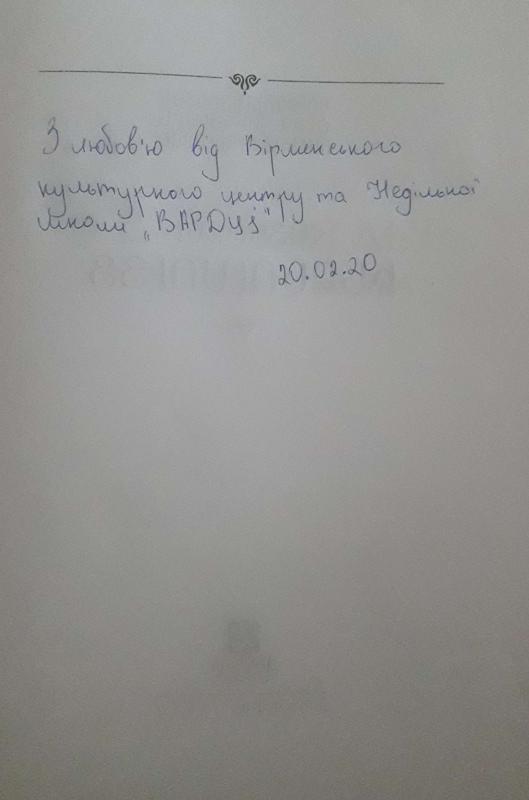 З любов'ю від Вірменського
культурного центру та Недільної
школи „ВАРДУЦ"
20.02.20